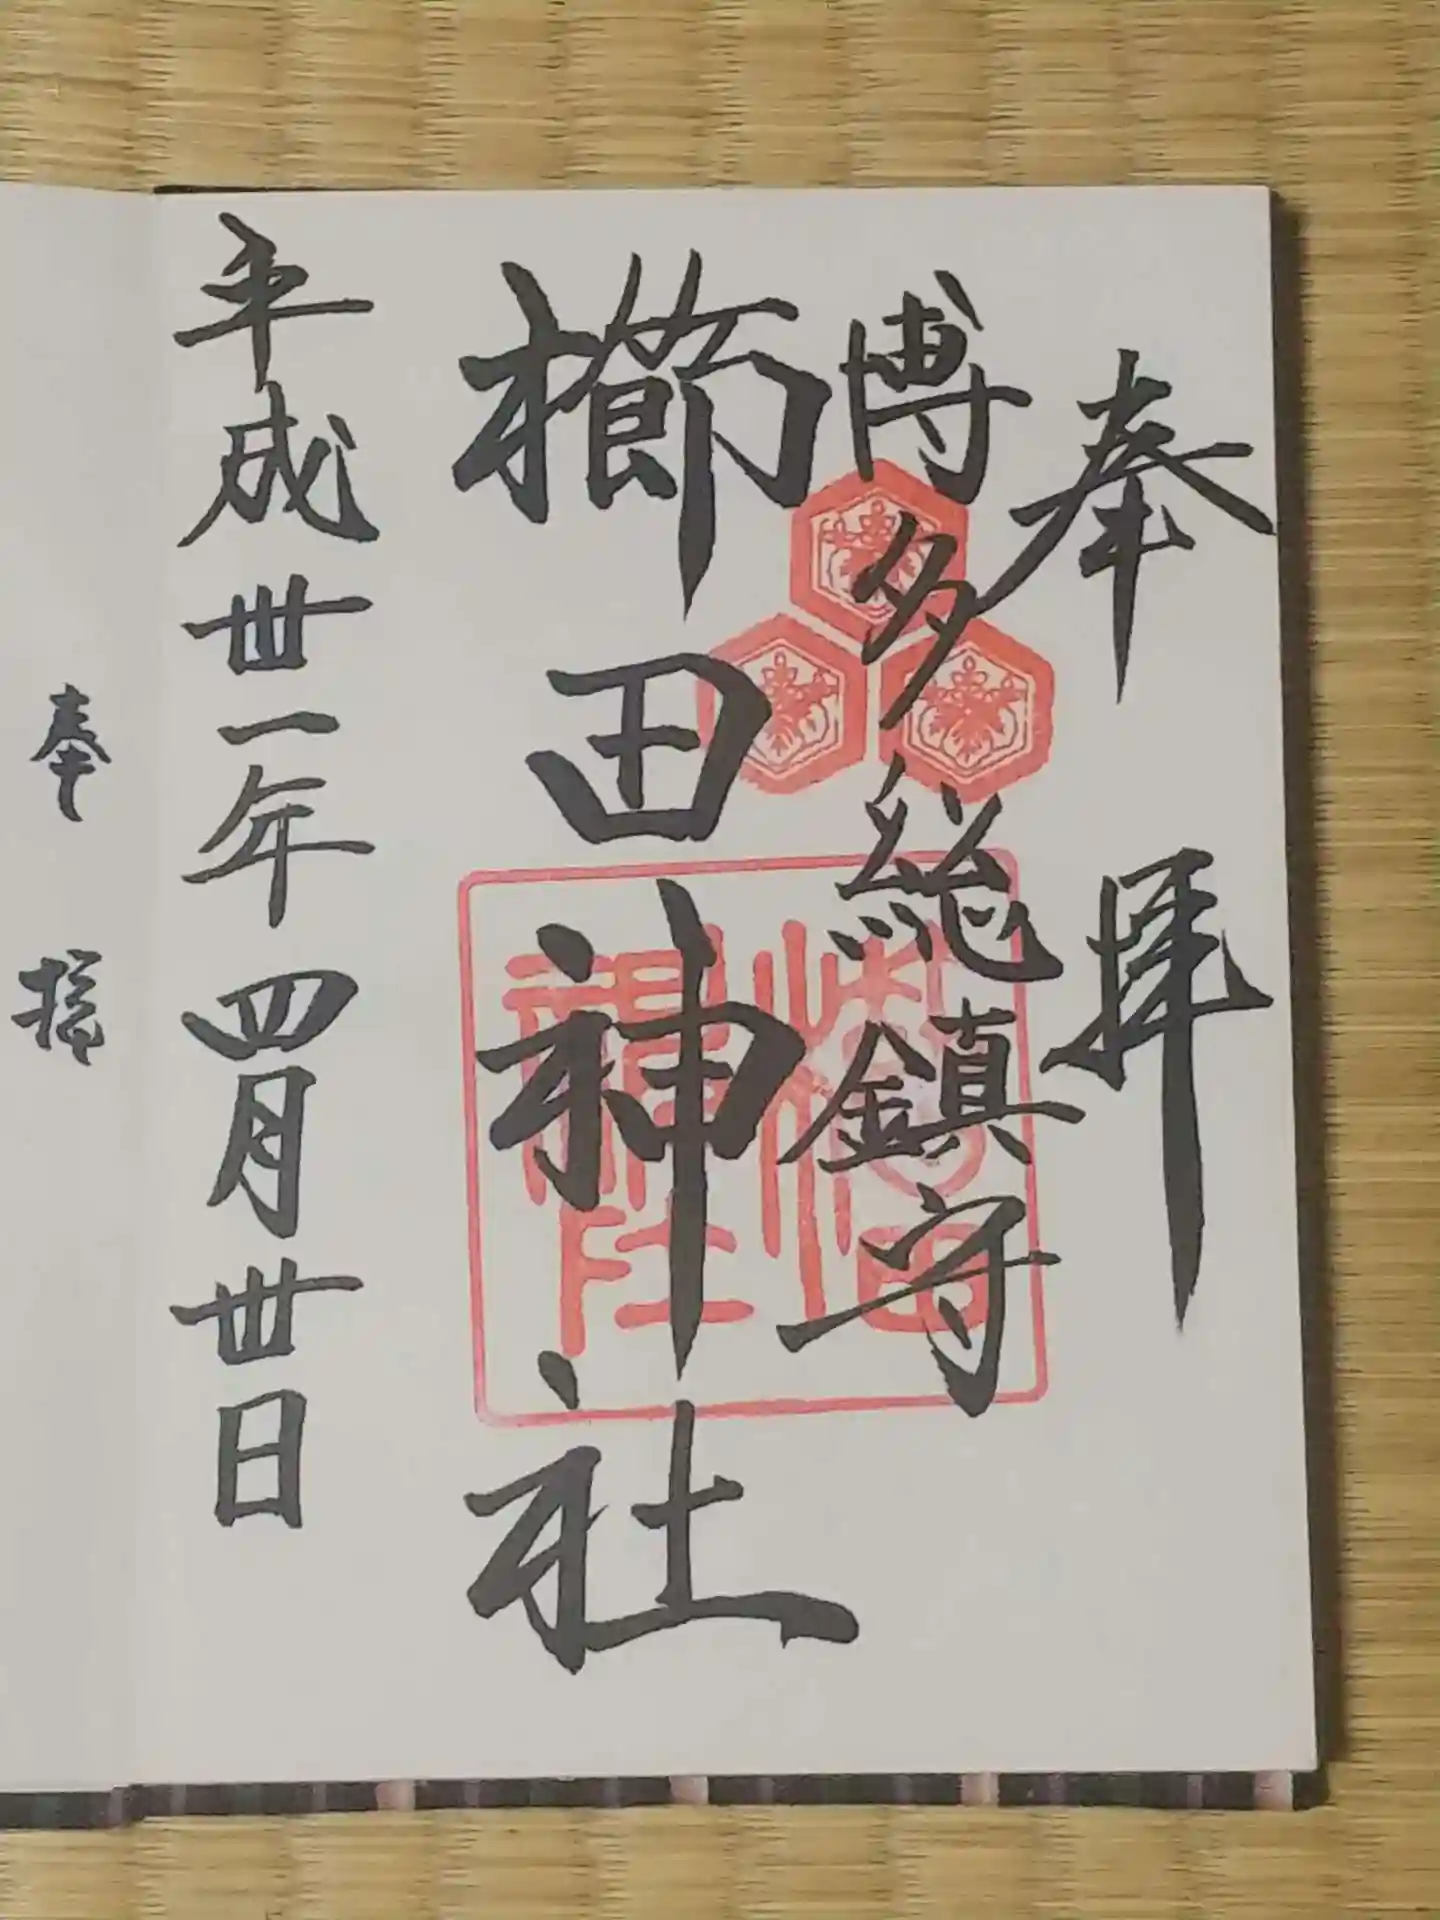 奉拝
博多総鎮守
櫛田神社
平成丗一年四月丗日
櫛田
神社
奉拝